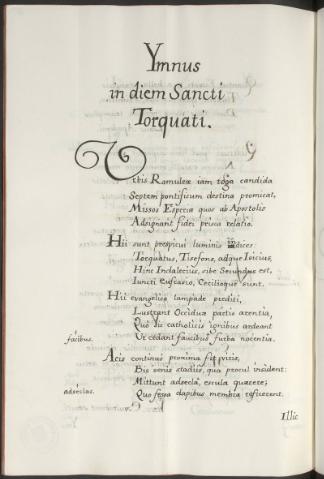 Ymnus
in diem Sancti
Torquati.
Urbis Romuleæ iam toga candida
Septem pontificum destina promicat,
Missos Esperiæ quos ab Apostolis
Adsignant fidei prisca relatio.
Hii sunt perspicui luminis indices
Torquatus, Tisefons, adque Isicius,
Hinc Indalecius, sibe Secundus est,
Iuncti Eufrasio, Cecilioque sunt.
Hii evangelica lampade præditi,
Lustrant Occiduæ partis arentia,
Quo sic catholicis ignibus ardeant
Ut cedant faucibus furba nocentia.
facibus.
Acis continuo proxima fit viris,
Bis senis stadiis, qua procul insident:
Mittunt adseclas, escula quærere;
adseclas.
Quo fessa dapibus membra reficerent.
Illic